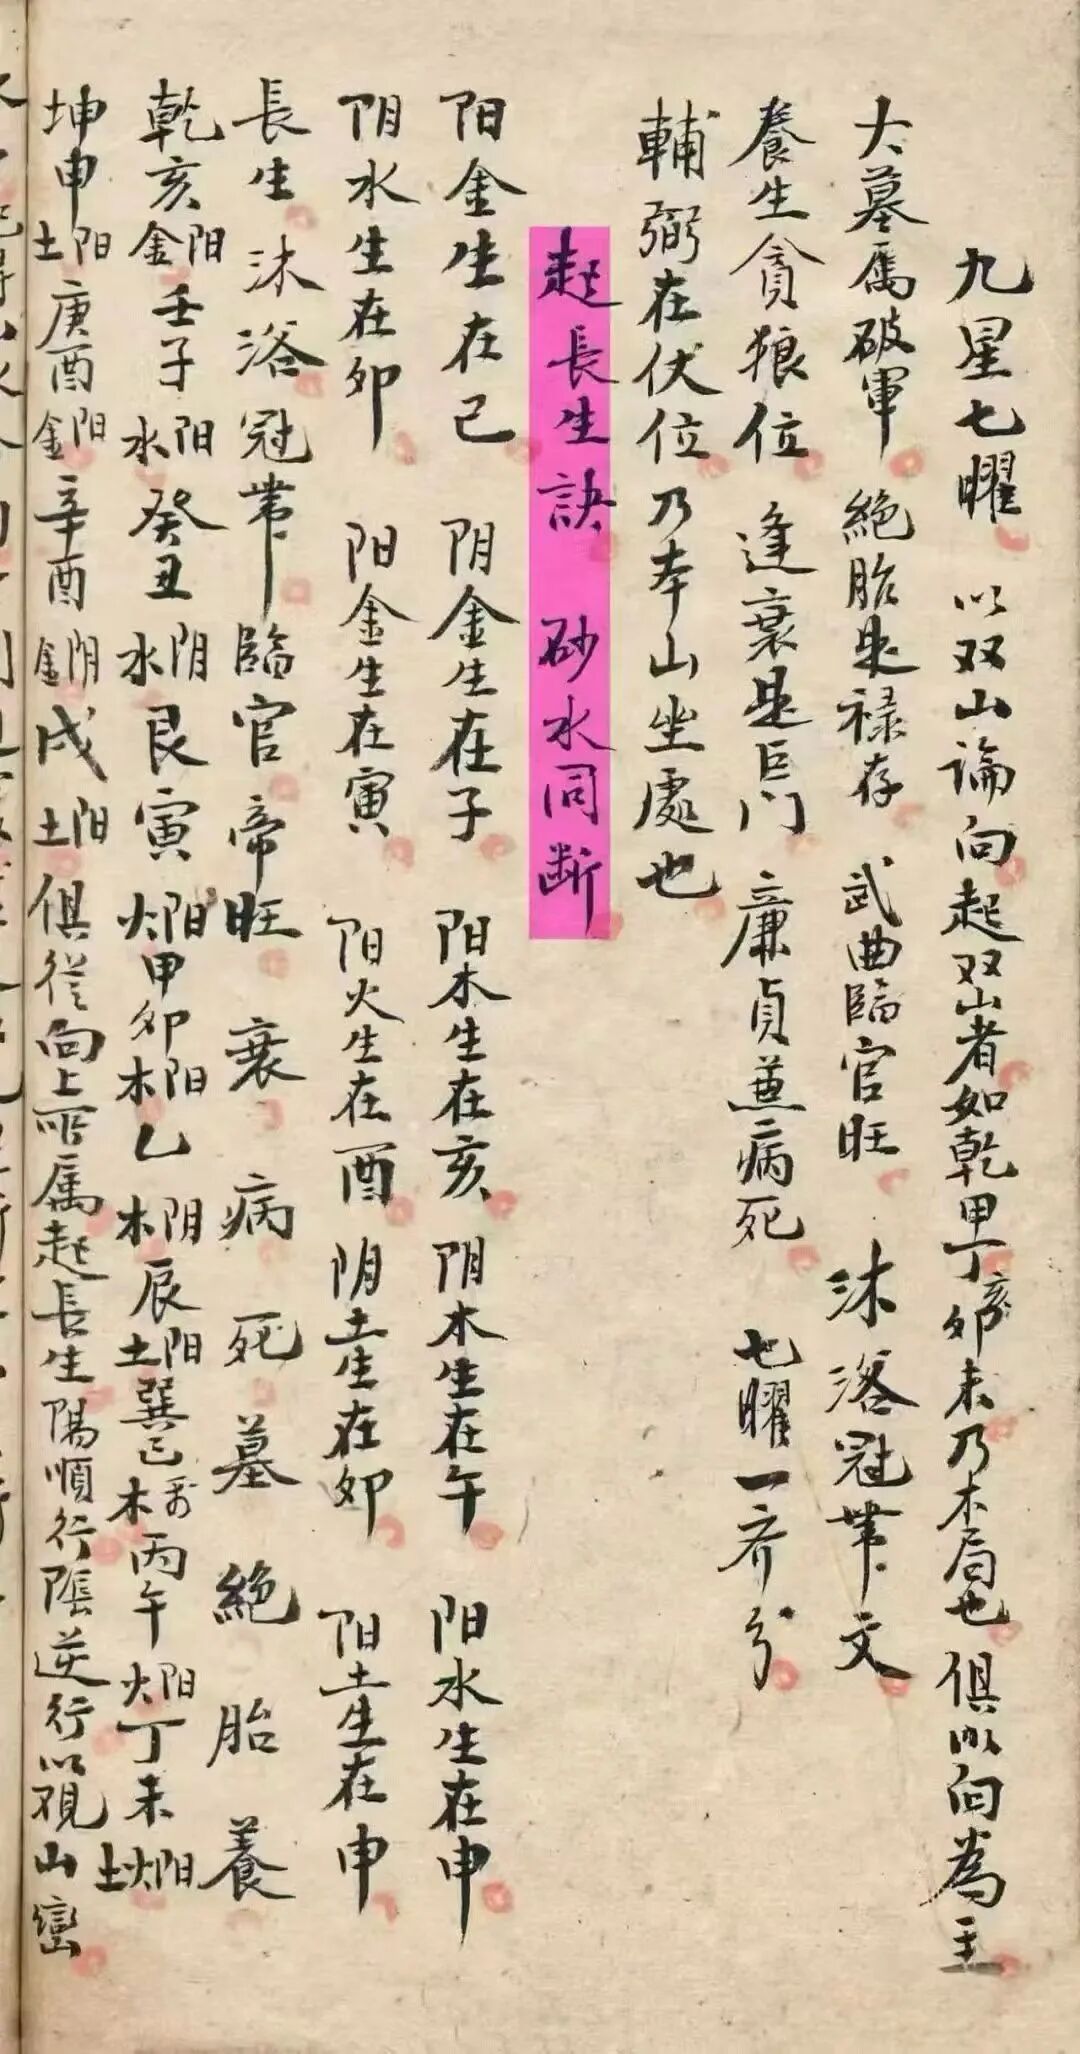 九星七曜 以双山論向起双山者如乾甲丁亥卯未乃木局也 俱以向為主
大墓為破軍 絕胎是禄存 武曲臨官旺 沐浴冠带文
養生貪狼位 逢衰是巨门 廉貞兼病死 七曜一齐分
輔弼在伏位 乃本山坐處也
起長生訣 砂水同断
阳金生在已 阴金生在子 阳木生在亥 阴木生在午 阳水生在申
阴水生在卯 阳金生在寅 阴火生在酉 阴土生在卯 阳土生在申
長生 沐浴 冠带 臨官 帝旺 衰 病 死 墓 絕 胎 養
乾亥阳金壬子阳水癸丑阴水艮寅阳火甲卯阳木乙阴木辰阳土巽巳木丙午阳火丁未阳火土
坤申阳土庚酉阳金辛酉阴金戌阳土俱從向上所属起長生陽順行陰逆行以观山巒